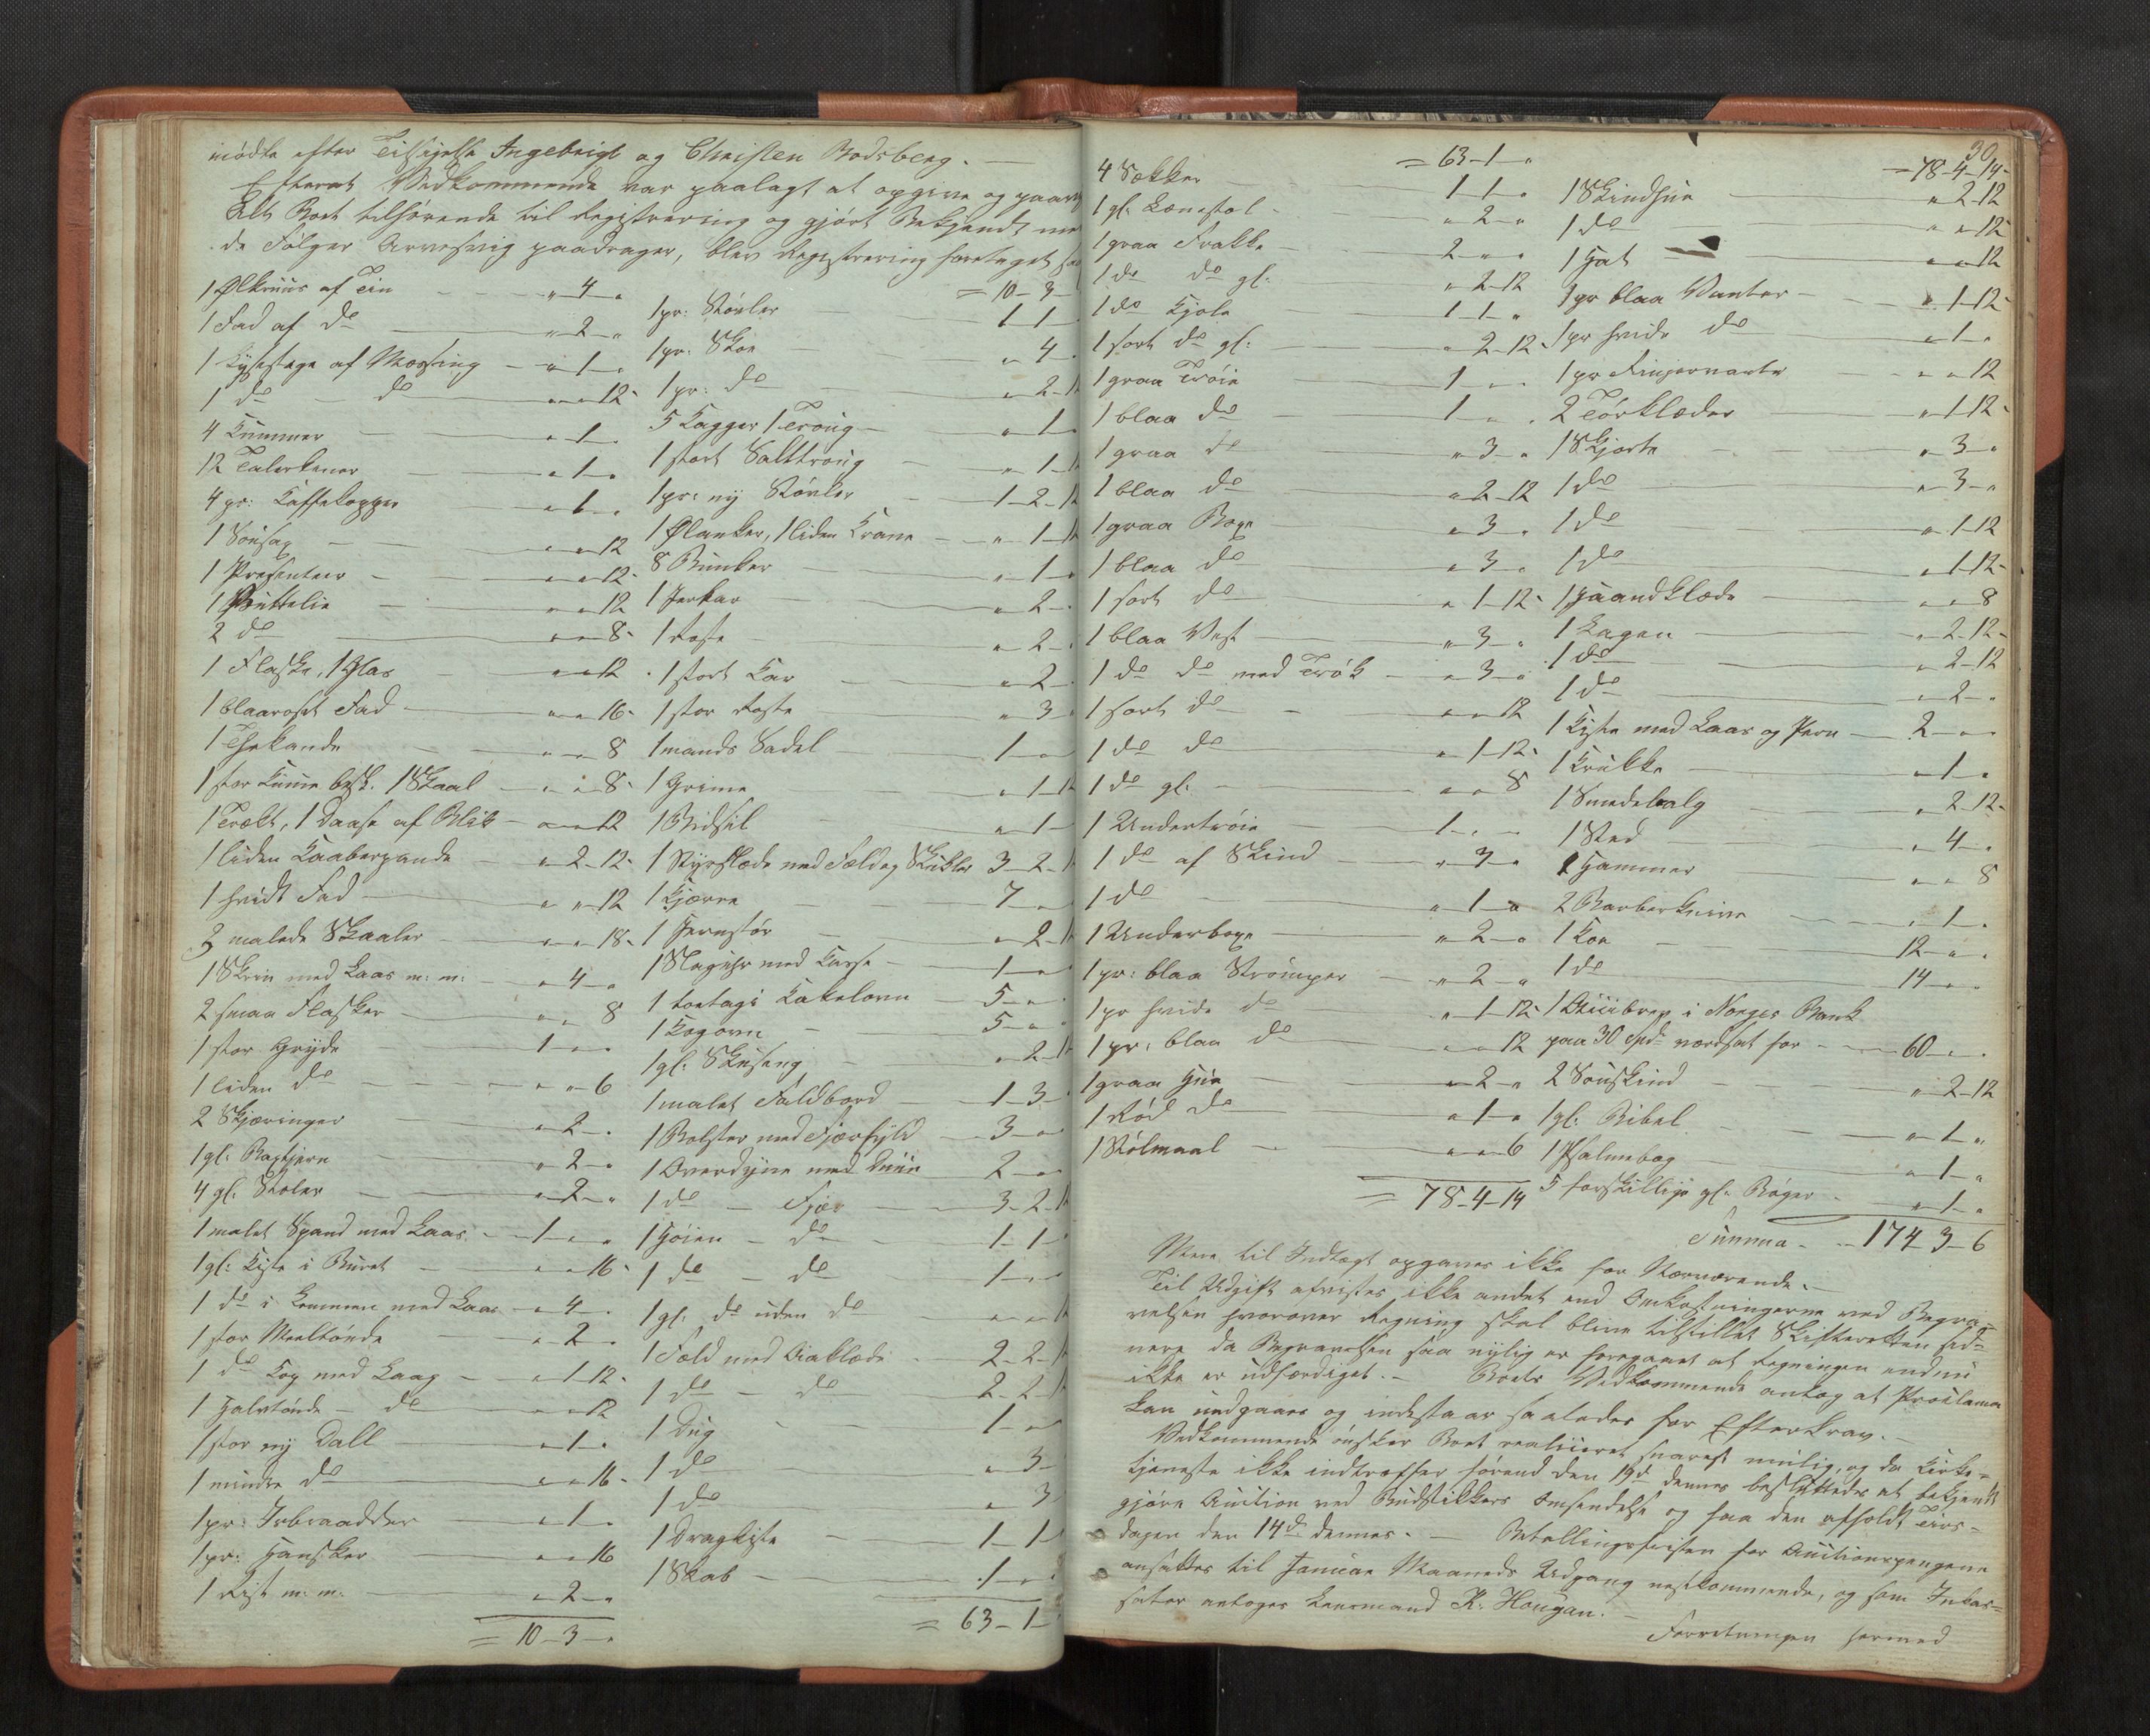 mödte efter Tilsigelse Ingebrigt og Christen Rodsberg. —
Efterat Vedkommende var paalagt at opgive og paavi
Alt Boet tilhörende til Registrering og gjört Bekjendt me
de Fölger Arvesvig paadrager, blev Registrering foretaget
1 Ölkruus af Tin " 4 "
1 Fad af do " 2 "
1 Lysestage af Messing " 1 "
1 do — do " " 12
4 Kummer " 1 "
12 Talerkener " 1 "
4 pr: Kaffekopper " 1 "
1 " " 12
1 Presenteer " " 12
1 Buttelie " " 12
2 do " " 8
1 Flaske, 1 Glas " " 12
1 blaaroset Fad " " 16
1 Thekande " " 8
1 stor Kumme besk. 1 Skaal " " 8
1 Trækt, 1 Daase af Blik " " 12
1 liden Kaaberpande " 2 12
1 hvidt Fad " " 12
3 malede Skaaler " " 18
1 Skrin med Laas m: m: " 4 "
2 smaa Flasker " " 8
1 stor Gryde 1 " "
1 liden do " " 6
2 Skjæringer " 2 "
1 gl: Baxtjern " 2 "
4 gl: Stoler " 2 "
1 malet Spand med Laas 1 " "
1 gl: Kiste i Buret " " 16
1 do i Kammen med Laas " 4 "
1 stor Meeltönde " 2 "
1 do Kop med Laag " 1 12
1 Halvtönde — do " " 12
1 stor ny Dall " 1 "
1 mindre do " " 16
1 pr: Isbraadder " 1 "
1 pr: Handsker " " 16
1 Rist m: m: " 2 "
= 10 - 3 - "
= 10 - 3 -
1 pr: Stövler 1 1
1 pr: Skoe " 4
1 pr: do " 2 1
5 Kagger 1 Troug " 1
1 stort Salttroug " 1 1
1 pr: ny Stövler 1 - 2 - 12
1 Ölanker, 1 liden Krane " 1 1
8 Bunker " 1
1 Jerkar " 2
1 Roste " 2
1 stort Kar " 2
1 stor Roste " 3
1 mands Sadel 1 "
1 Grime " 1 12
1 Bidsil " 1
1 Styrslæde med Feld og Skukler 3 - 2 - 1
1 Kjærre 7 "
1 Jernstör " 2 1
1 Slaguhr med Kasse 1 "
1 toetags Kakelovn 5 "
1 Kogovn 5 "
1 gl: " 2 1
1 malet Faldbord 1 - 3
1 Bolster med Fjærfyld 3 "
1 Overdyne med Duun 2 "
1 do — Fjær 3 - 2 - 1
1 Höien — do 1 - 1
1 do — do 1 "
1 gl: do uden do " " 1
1 Feld med Aaklæde 2 - 2 - 1
1 do — do 2 - 2 - 1
1 Dug 1 "
1 do " 3
1 do " 3
1 Dragkiste 1 - 1
1 Skab 1 "
= 63 - 1
30
= 63 - 1 - "
4 Sækker 1 - 1 - "
1 gl: Lænestol " 2 "
1 graa Frakke 2 " "
1 do do gl: " 2 12
1 do Kjole 1 - 1 "
1 sort do gl: " 2 - 12
1 graa Tröie 1 " "
1 blaa do 1 " "
1 graa do " 3 "
1 blaa do " 2 12
1 graa Boxe " 3 "
1 blaa do " 3 "
1 sort do " 1 12
1 blaa Vest " 3 "
1 do do med Trök " 3 "
1 sort do " " 12
1 do do " 1 12
1 do gl: " " 8
1 Undertröie 1 " "
1 do af Skind " 3 "
1 do " 1 "
1 Underboxe " 2 "
1 pr: blaa Strömper " 2 "
1 pr hvide do " 1 12
1 pr: blaa do " " 12
1 graa Hue " 2 "
1 Röd do " 1 "
1 Stölmaal " " 6
= 78 - 4 - 14
= 78 - 4 - 14
1 Skindhue " 2 12
1 do " " 12
1 Hat " " 12
1 pr blaa Vanter " 1 - 12
1 pr hvide do " 1 "
1 pr Fingervanter " " 12
2 Törklæder " 1 12
1 Skjorte " 3 "
1 do " 3 "
1 do " 1 12
1 do " 1 12
1 Haandklæde " " 8
1 Lagen " 2 12
1 do " 2 12
1 do " 2 "
1 Kiste med Laas og Jern 2 " "
1 Krukke " 1 "
1 Smedebælg " 2 12
1 Sted " 4 "
1 Hammer " " 8
2 Barberknive " 1 "
1 Koe 12 " "
1 do 14 " "
1 i Norges Bank
paa 30 Spd værdsat for 60 " "
2 Soueskind " 2 12
1 gl: Bibel " 1 "
1 Psalmebog " 1 "
5 forskillige gl: Böger " 1 "
Summa 174 - 3 - 6
Mere til Indtægt opgaves ikke for Nærværende. —
Til Udgift afvistes ikke andet end Omkostningerne ved Begra-
velsen hvorover Regning skal blive tilstillet Skifteretten sid-
nere da Begravelsen saa nylig er foregaaet at Regningen endnu
ikke er udfærdiget. — Boets Vedkommende antog at Proclama
kan undgaaes og indestaar saaledes for Efterkrav. —
Vedkommende önsker Boet realiseret snarest mulig, og da Kirke-
tjeneste ikke indtræffer förend den 19d dennes besluttedes at bekjendt
gjöre Auction ved Budstikkers Omsendelse og faa den afholdt Tirs-
dagen den 14de dennes. — Betallingsfristen for Auctionspengene
ansattes til Januar Maaneds Udgang nestkommende, og som Inkas-
sator antoges Lensmand K. Hougan. —
Forretningen hermed